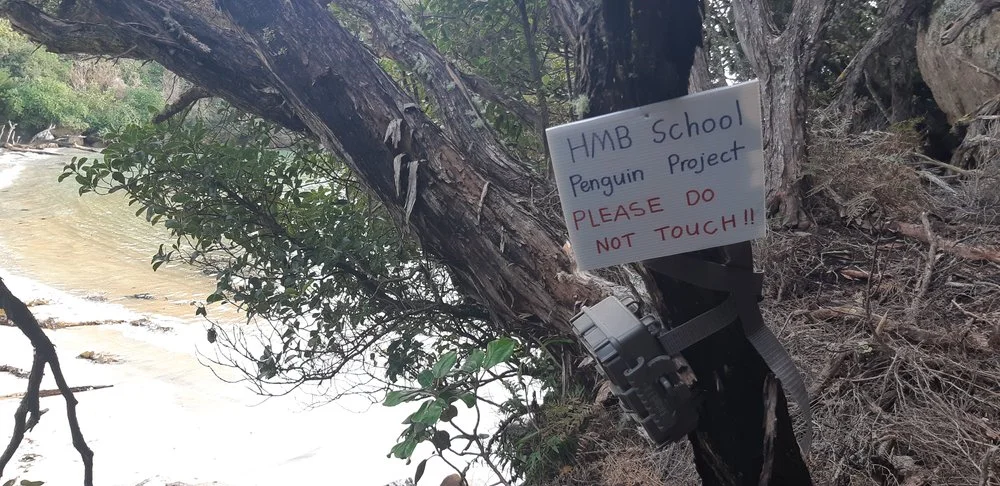 HMB School
Penguin Project
PLEASE DO
NOT TOUCH!!